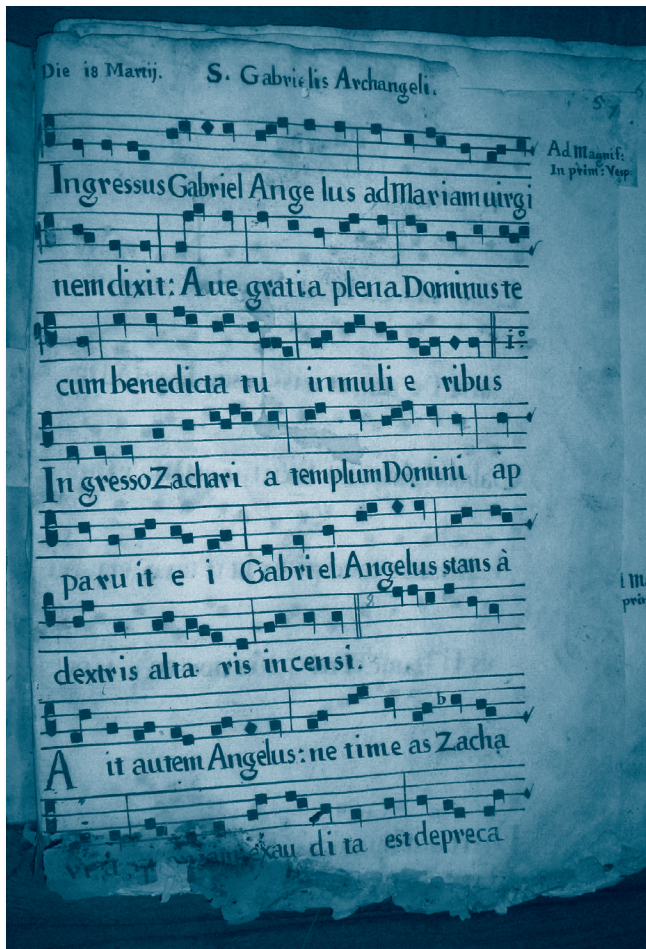 Die 18 Martij. S. Gabrielis Archangeli.
57
Ad Magnif:
In prim: Vesp
Ingressus Gabriel Ange lus ad Mariam uirgi
nem dixit: A ue gratia plena Dominus te
cum benedicta tu in muli e ribus
In gresso Zachari a templum Domini ap
paru it e i Gabri el Angelus stans à
dextris alta ris incensi.
A it autem Angelus: ne time as Zacha
exau di ta est depreca